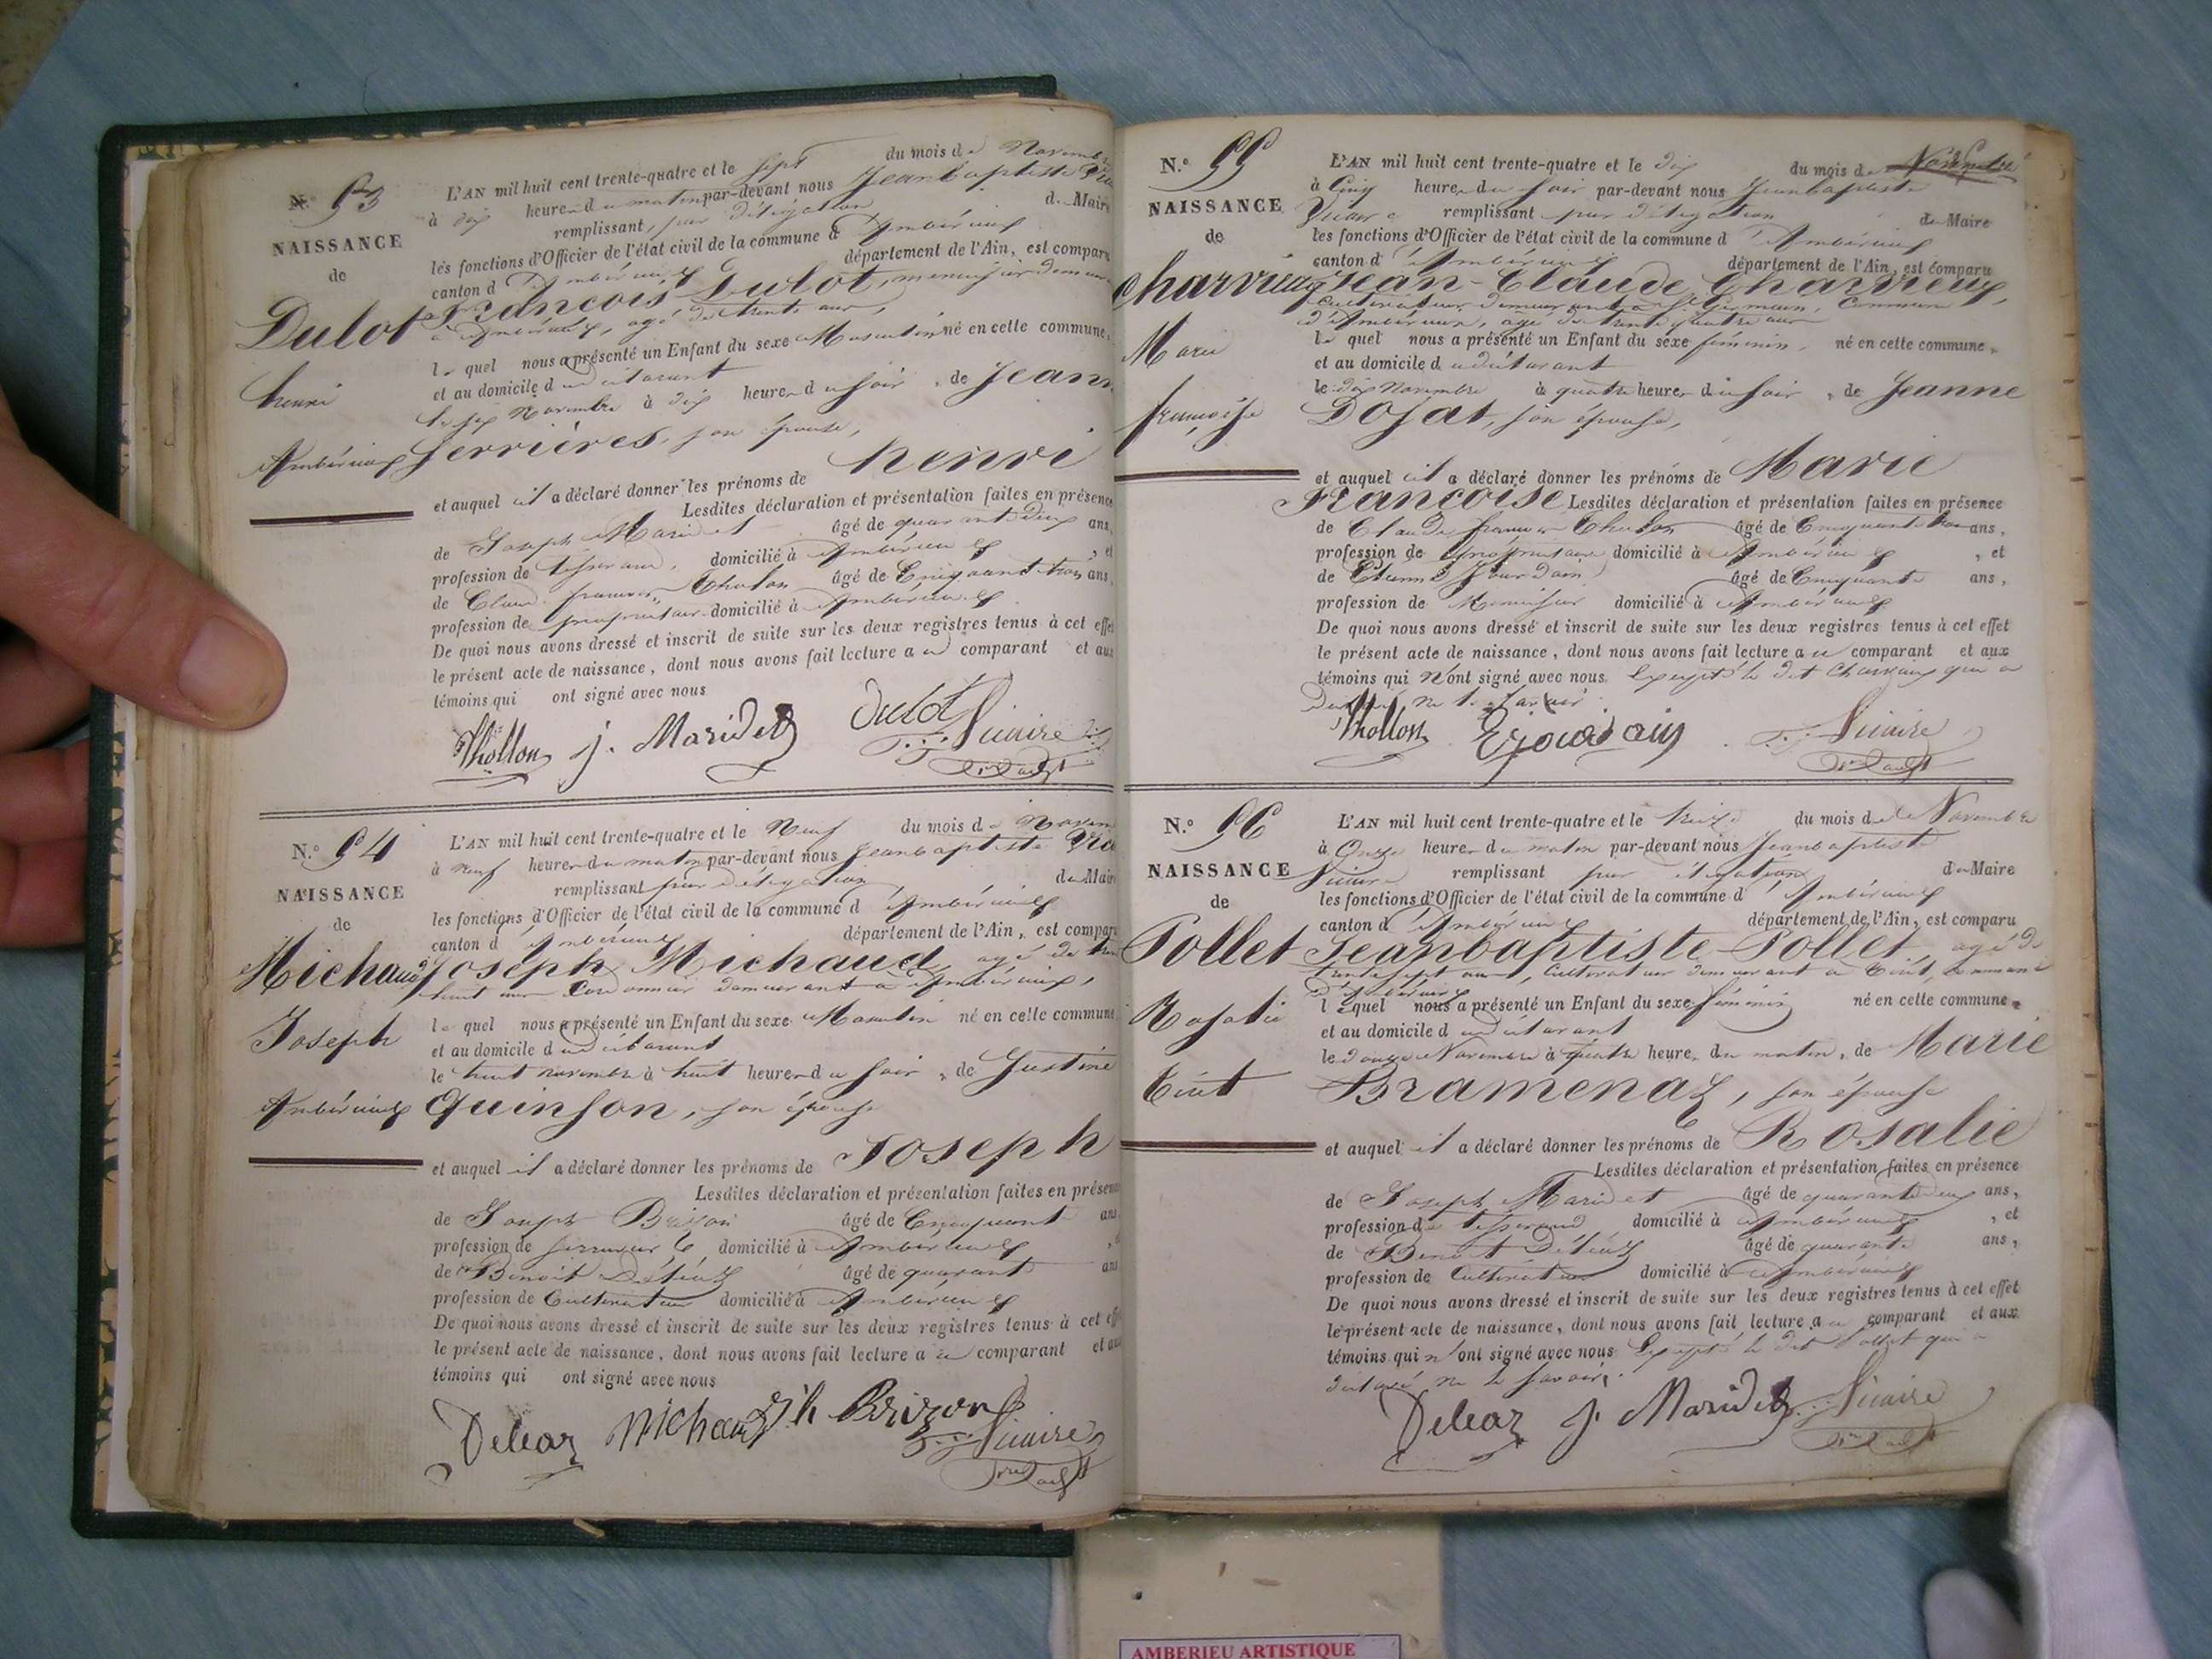 N.° 93
NAISSANCE
de
Dulot
henri
Ambérieux
L'AN mil huit cent trente-quatre et le sept du mois de Novembre
à dix heures du matin par-devant nous Jeanbaptiste
remplissant, par délégation de Maire
les fonctions d'Officier de l'état civil de la commune d'Ambérieux
canton d'Ambérieux département de l'Ain, est comparu
François Dulot, menuisier
à Ambérieux, agé de trente ans,
le quel nous a présenté un Enfant du sexe Masculin né en cette commune,
et au domicile du déclarant
le Novembre à dix heures du soir, de Jeanne
Ferrières, son épouse,
et auquel il a déclaré donner les prénoms de henri
Lesdites déclaration et présentation faites en présence
de Joseph Maridet âgé de quarante deux ans,
profession de tisserand, domicilié à Ambérieux, et
de Claude françois Tholon âgé de Cinquante trois ans,
profession de propriétaire domicilié à Ambérieux
De quoi nous avons dressé et inscrit de suite sur les deux registres tenus à cet effet
le présent acte de naissance, dont nous avons fait lecture au comparant et aux
témoins qui ont signé avec nous
Thollon J. Maridet Dulot Vicaire
N.° 94
NAISSANCE
de
Michaud
Joseph
Ambérieux
L'AN mil huit cent trente-quatre et le Neuf du mois de
à neuf heures du matin par-devant nous Jeanbaptiste
remplissant par délégation de Maire
les fonctions d'Officier de l'état civil de la commune d'Ambérieux
canton d'Ambérieux département de l'Ain, est comparu
Joseph Michaud, agé de
huit ans Cordonnier demeurant à Ambérieux,
le quel nous a présenté un Enfant du sexe Masculin né en cette commune
et au domicile du déclarant
le huit novembre à huit heures du soir, de Justine
Quinson, son épouse
et auquel il a déclaré donner les prénoms de Joseph
Lesdites déclaration et présentation faites en présence
de Joseph Brison âgé de Cinquante ans
profession de serrurier domicilié à Ambérieux
de Benoit âgé de quarante ans
profession de Cultivateur domicilié à Ambérieux
De quoi nous avons dressé et inscrit de suite sur les deux registres tenus à cet
le présent acte de naissance, dont nous avons fait lecture au comparant et aux
témoins qui ont signé avec nous
Michaud Brizon Vicaire
N.° 95
NAISSANCE
de
Charvieux
Marie
françoise
L'AN mil huit cent trente-quatre et le dix du mois de Novembre
à Cinq heures du soir par-devant nous Jeanbaptiste
Vicaire remplissant par délégation de Maire
les fonctions d'Officier de l'état civil de la commune d'Ambérieux
canton d'Ambérieux département de l'Ain, est comparu
Jean-Claude Charvieux,
Cultivateur demeurant à St Germain, Commune
d'Ambérieux, âgé de trente quatre ans
le quel nous a présenté un Enfant du sexe féminin, né en cette commune,
et au domicile du déclarant
le dix Novembre à quatre heures du soir, de Jeanne
Dosat, son épouse,
et auquel il a déclaré donner les prénoms de Marie
Françoise Lesdites déclaration et présentation faites en présence
de Claude françois Tholon âgé de Cinquante trois ans,
profession de propriétaire domicilié à Ambérieux, et
de Etienne Jourdain âgé de Cinquante ans,
profession de Menuisier domicilié à Ambérieux
De quoi nous avons dressé et inscrit de suite sur les deux registres tenus à cet effet
le présent acte de naissance, dont nous avons fait lecture au comparant et aux
témoins qui n'ont signé avec nous Excepté le dit Charvieux qui a
déclaré ne le savoir
Thollon E Jourdain Vicaire
N.° 96
NAISSANCE
de
Pollet
Rosalie
Tiret
L'AN mil huit cent trente-quatre et le treize du mois de Novembre
à Onze heures du matin par-devant nous Jeanbaptiste
Vicaire remplissant par délégation de Maire
les fonctions d'Officier de l'état civil de la commune d'Ambérieux
canton d'Ambérieux département de l'Ain, est comparu
Jeanbaptiste Pollet, agé de
trente sept ans, Cultivateur demeurant à Tiret, commune
d'Ambérieux
lequel nous a présenté un Enfant du sexe féminin né en cette commune,
et au domicile du déclarant
le douze Novembre à quatre heures du matin, de Marie
Bramenaz, son épouse
et auquel il a déclaré donner les prénoms de Rosalie
Lesdites déclaration et présentation faites en présence
de Joseph Maridet âgé de quarante deux ans,
profession de tisserand domicilié à Ambérieux, et
de Benoit âgé de quarante ans,
profession de Cultivateur domicilié à Ambérieux
De quoi nous avons dressé et inscrit de suite sur les deux registres tenus à cet effet
le présent acte de naissance, dont nous avons fait lecture au comparant et aux
témoins qui n'ont signé avec nous Excepté le dit Pollet qui a
déclaré ne le savoir.
J. Maridet Vicaire
AMBERIEU ARTISTIQUE